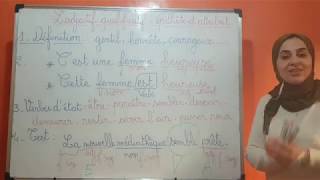 L'adjectif qualificatif épithète et attribut
1. Définition: gentil, honnête, courageux
2. * C'est une femme heureuse
* Cette femme est heureuse
3. Verbes d'état: être, paraître, sembler, devenir
demeurer, rester, avoir l'air, passer pour
4. Test: La nouvelle médiathèque semble prête.